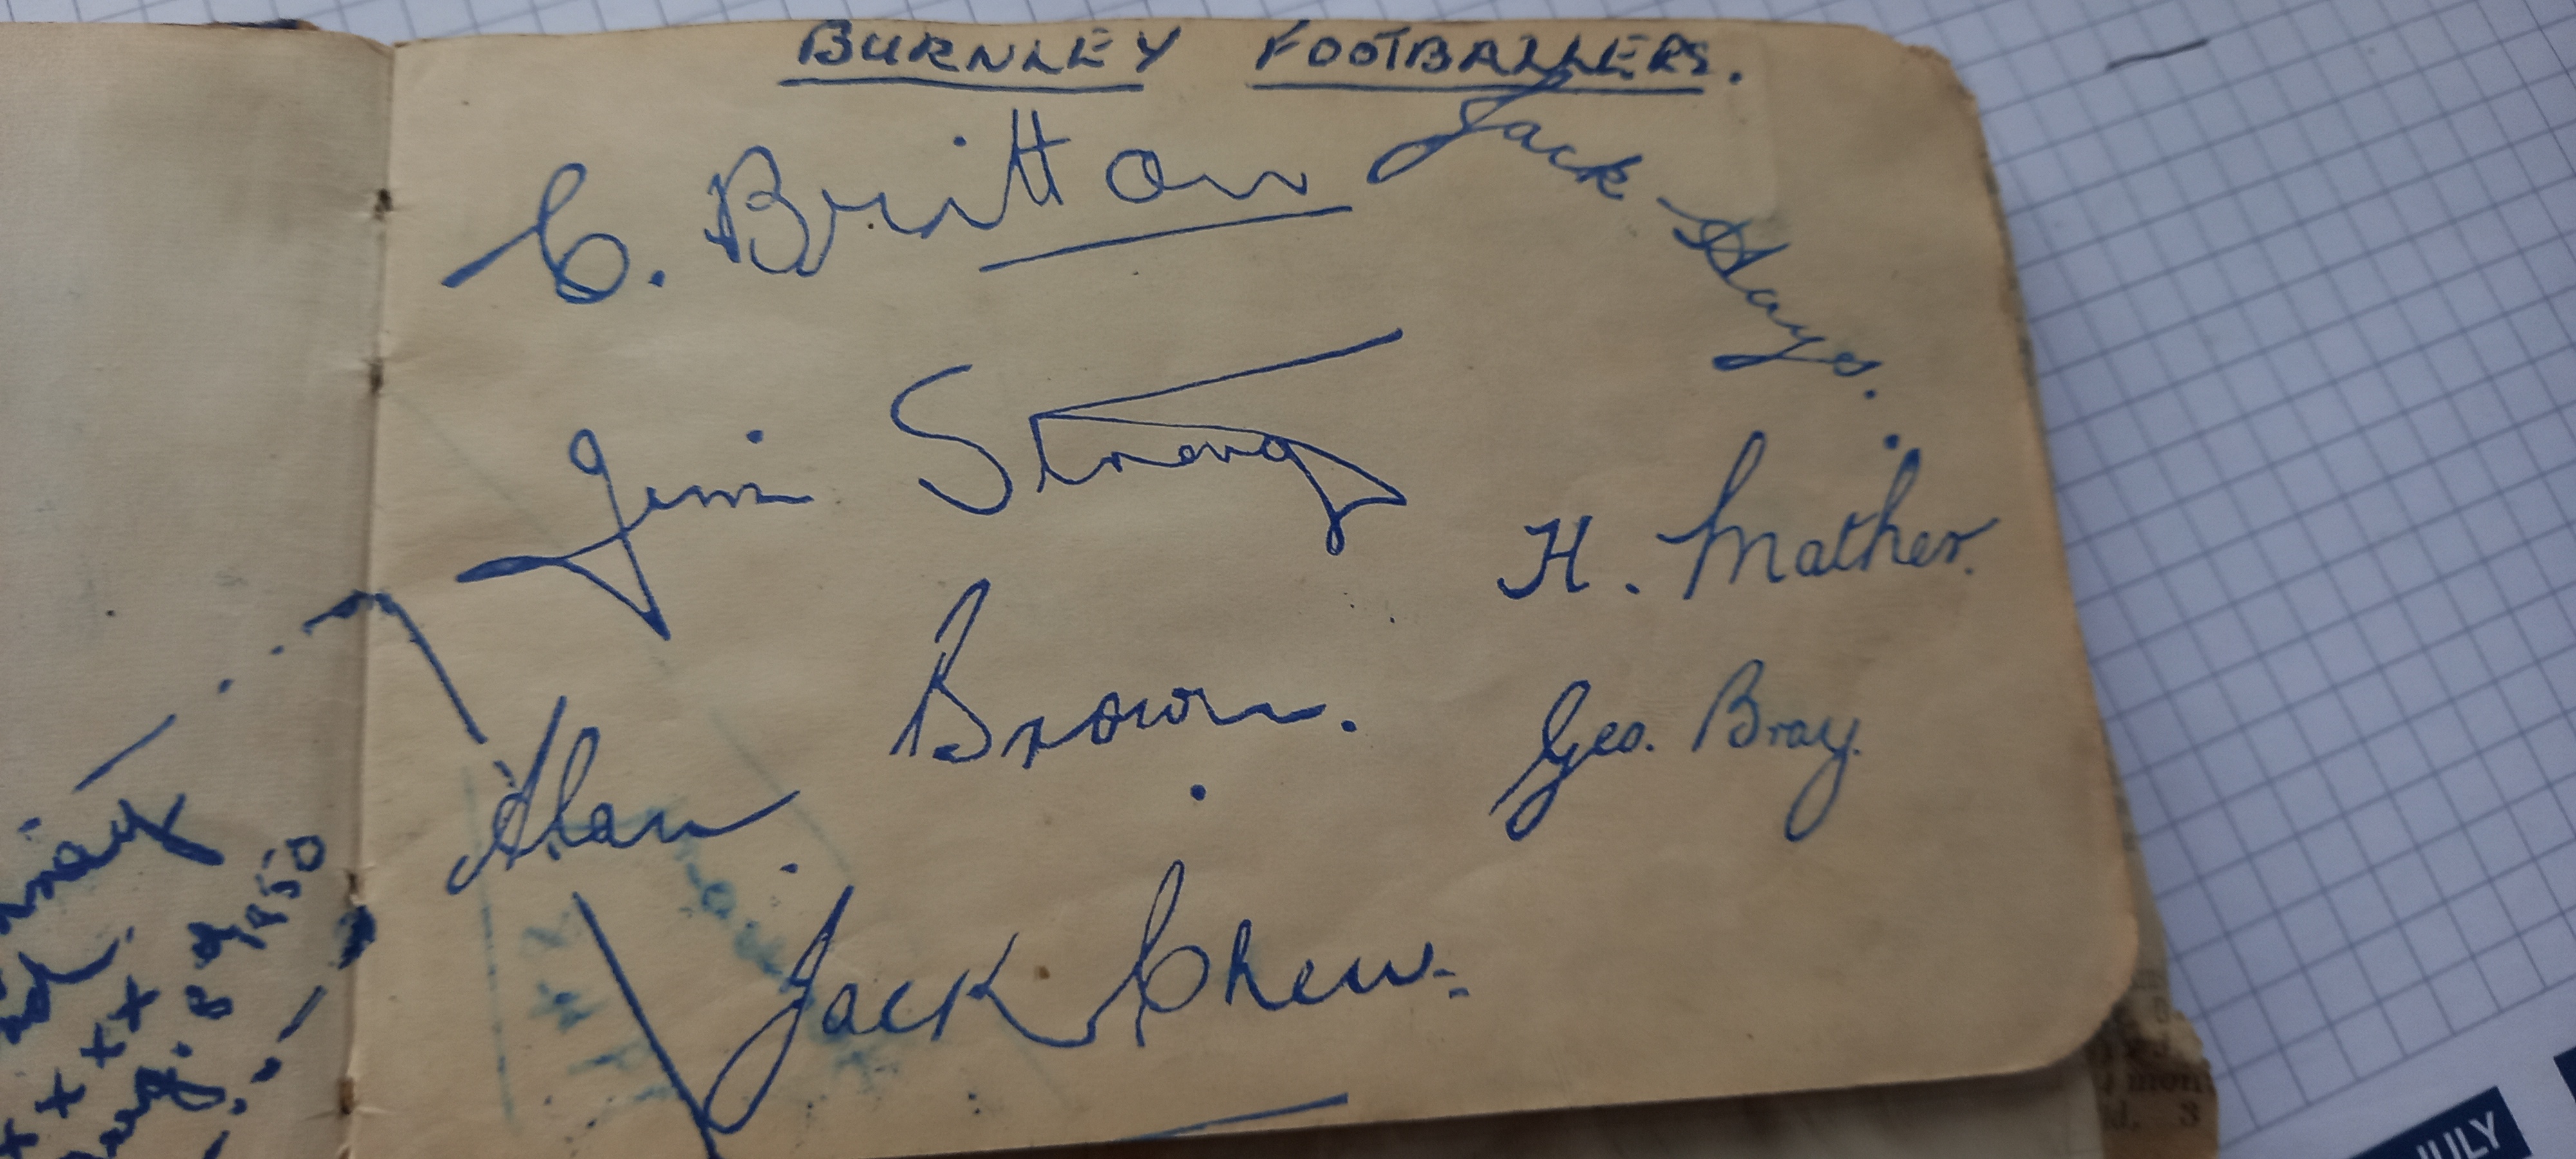 BURNLEY FOOTBALLERS.
C. Britton
Jack Hays.
Jim Strong
H. Mather.
Alan Brown.
Geo. Bray.
Jack Chew.
1950
x x x x x
JULY